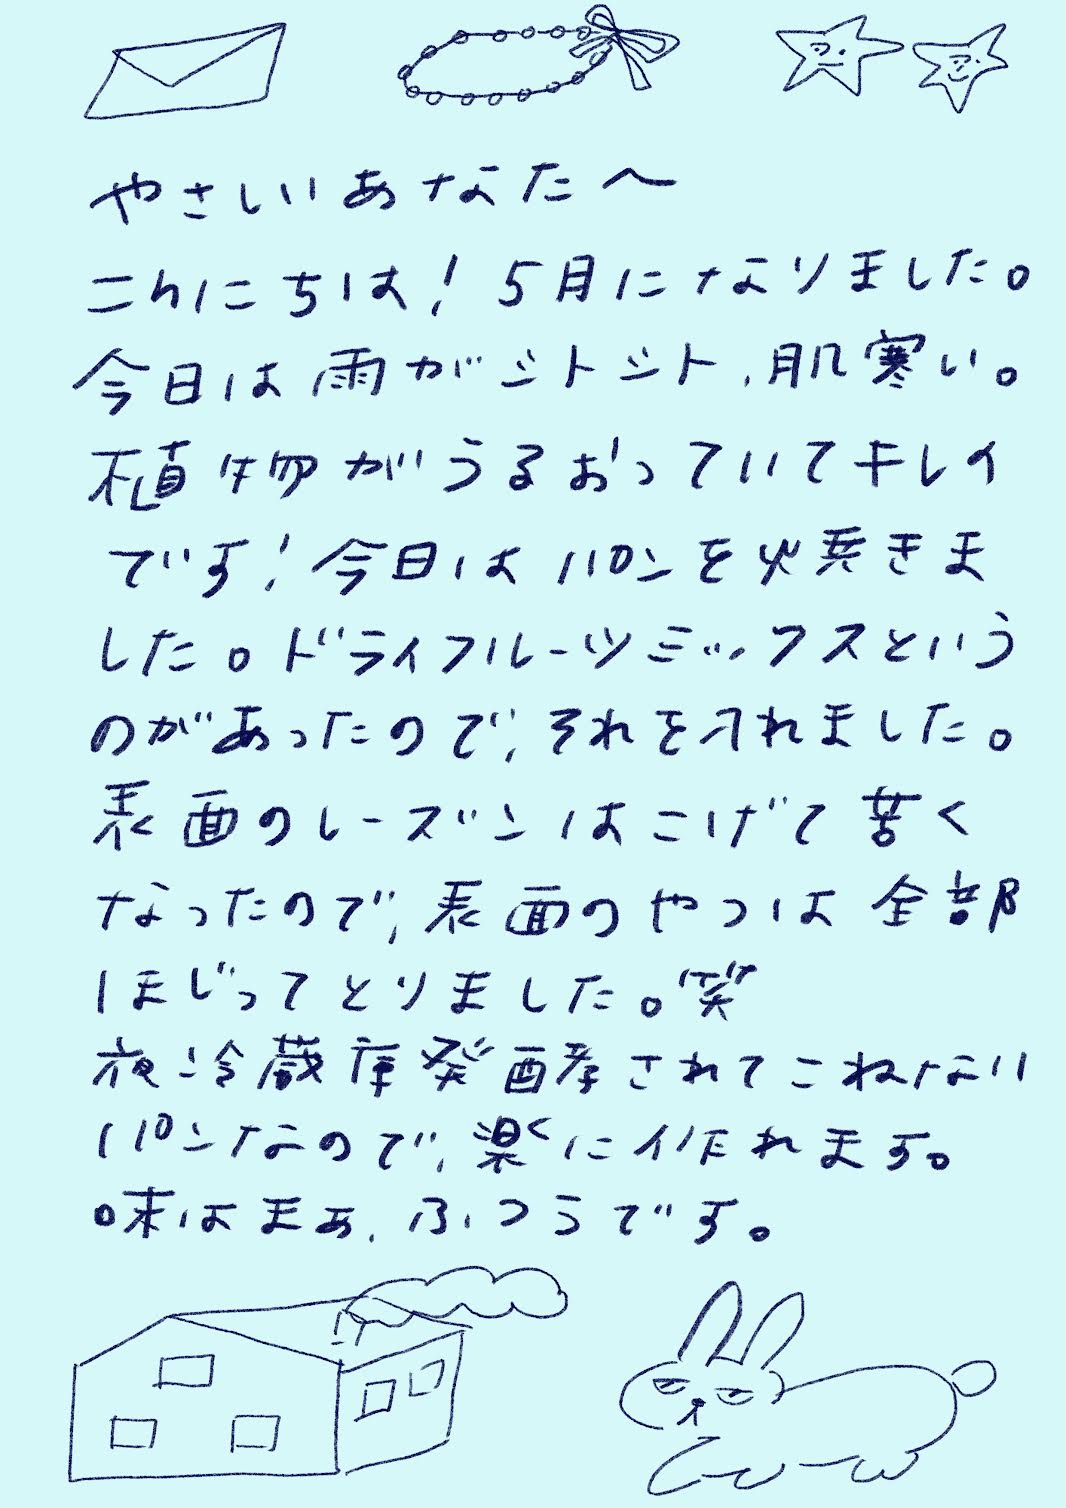 やさしいあなたへ
こんにちは！5月になりました。
今日は雨がシトシト、肌寒い。
植物がうるおっていてキレイ
です！今日はパンを焼きま
した。ドライフルーツミックスという
のがあったので、それを入れました。
表面のレーズンはこげて苦く
なったので、表面のやつは全部
ほじってとりました。笑
夜冷蔵庫発酵されてこねない
パンなので、楽に作れます。
味はまぁ、ふつうです。